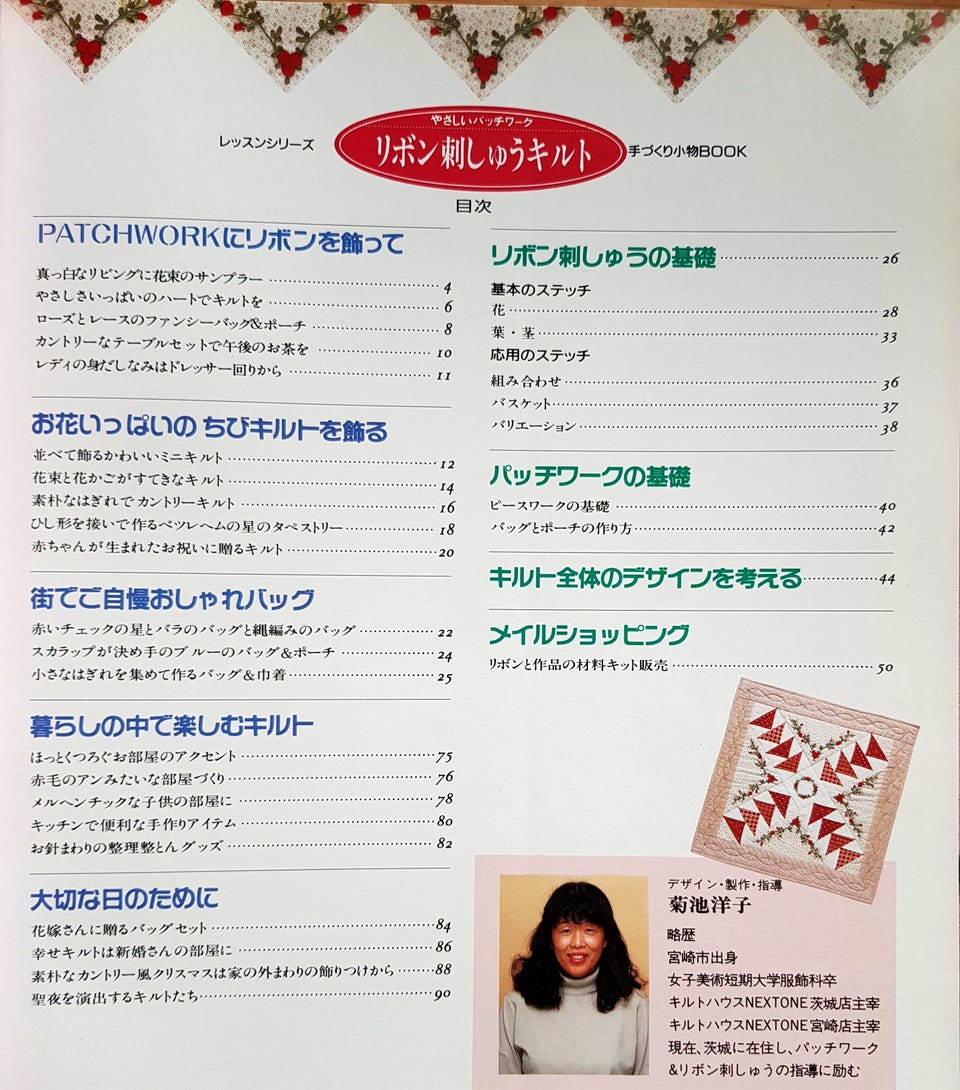 レッスンシリーズ
やさしいパッチワーク
リボン刺しゅうキルト
手づくり小物BOOK
目次
PATCHWORKにリボンを飾って
真っ白なリビングに花束のサンプラー 4
やさしさいっぱいのハートでキルトを 6
ローズとレースのファンシーバッグ&ポーチ 8
カントリーなテーブルセットで午後のお茶を 10
レディの身だしなみはドレッサー回りから 11
お花いっぱいの ちびキルトを飾る
並べて飾るかわいいミニキルト 12
花束と花かごがすてきなキルト 14
素朴なはぎれでカントリーキルト 16
ひし形を接いで作るベツレヘムの星のタペストリー 18
赤ちゃんが生まれたお祝いに贈るキルト 20
街でご自慢おしゃれバッグ
赤いチェックの星とバラのバッグと縄編みのバッグ 22
スカラップが決め手のブルーのバッグ&ポーチ 24
小さなはぎれを集めて作るバッグ&巾着 25
暮らしの中で楽しむキルト
ほっとくつろぐお部屋のアクセント 75
赤毛のアンみたいな部屋づくり 76
メルヘンチックな子供の部屋に 78
キッチンで便利な手作りアイテム 80
お針まわりの整理整とんグッズ 82
大切な日のために
花嫁さんに贈るバッグセット 84
幸せキルトは新婚さんの部屋に 86
素朴なカントリー風クリスマスは家の外まわりの飾りつけから 88
聖夜を演出するキルトたち 90
リボン刺しゅうの基礎 26
基本のステッチ
花 28
葉・茎 33
応用のステッチ
組み合わせ 36
バスケット 37
バリエーション 38
パッチワークの基礎
ピースワークの基礎 40
バッグとポーチの作り方 42
キルト全体のデザインを考える 44
メイルショッピング
リボンと作品の材料キット販売 50
デザイン・製作・指導
菊池洋子
略歴
宮崎市出身
女子美術短期大学服飾科卒
キルトハウスNEXTONE茨城店主宰
キルトハウスNEXTONE宮崎店主宰
現在、茨城に在住し、パッチワーク
&リボン刺しゅうの指導に励む